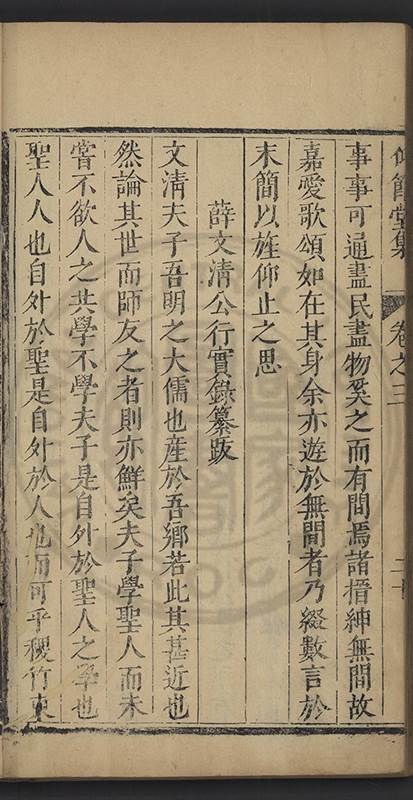 仰節堂集 卷之三
事事可通盡民盡物奚之而有間焉諸搢紳無間故
嘉愛歌頌如在其身余亦遊於無間者乃綴數言於
末簡以旌仰止之思
薛文清公行實錄纂跋
文清夫子吾明之大儒也産於吾鄉若此其甚近也
然論其世而師友之者則亦鮮矣夫子學聖人而未
嘗不欲人之共學不學夫子是自外於聖人之學也
聖人人也自外於聖是自外於人也而可乎稷竹東